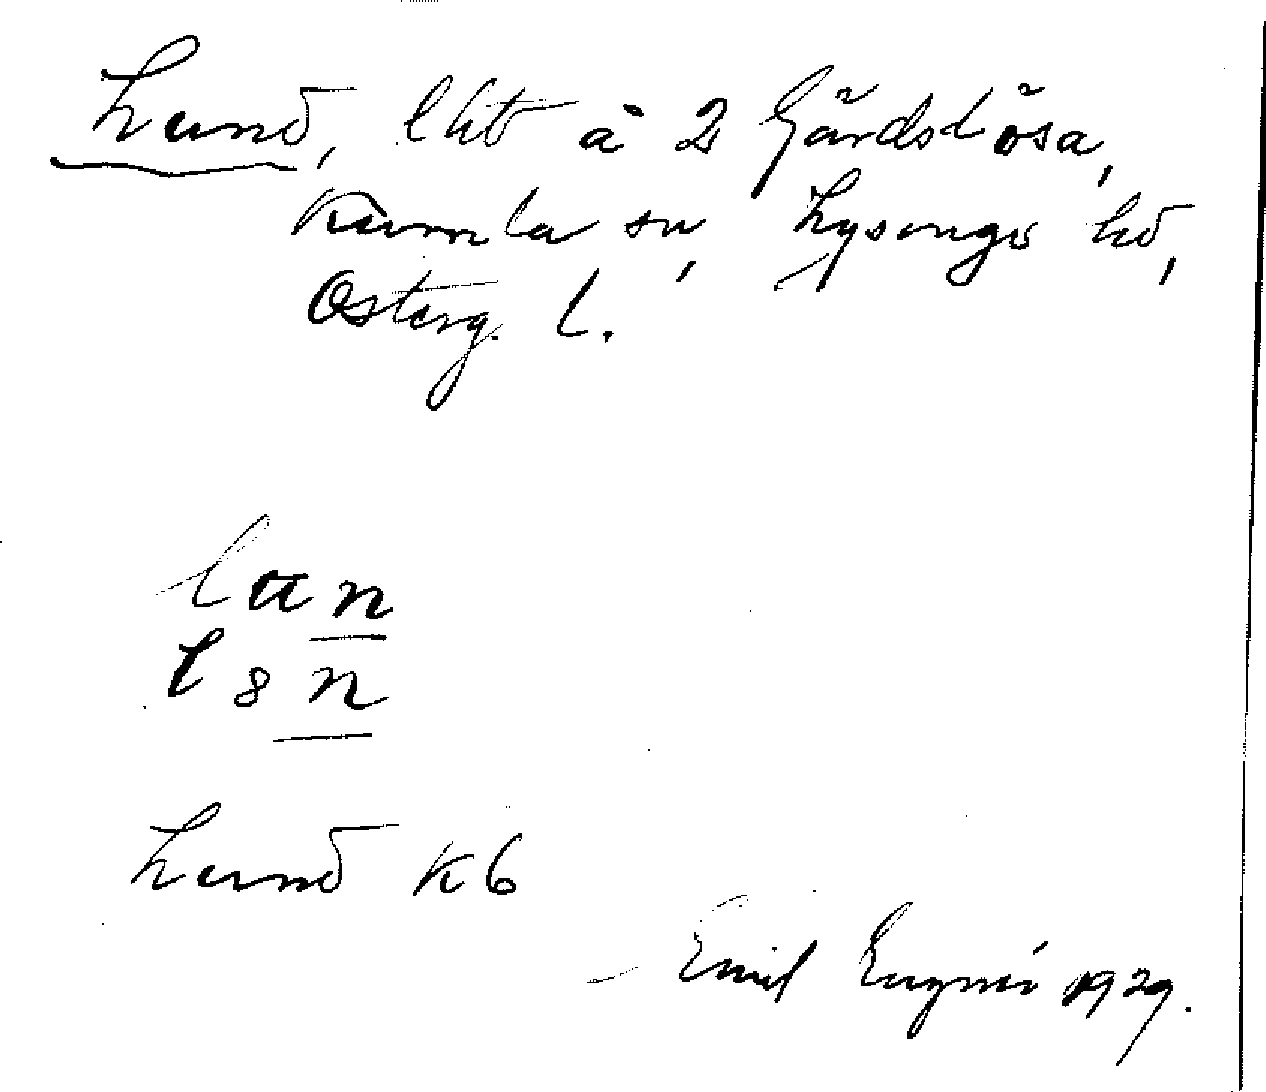 Lund, lht å 2 Gärdslösa,
Kumla sn, Lysings hd,
Österg. l.
lun
l8n
Lund K6
Emil 1929.